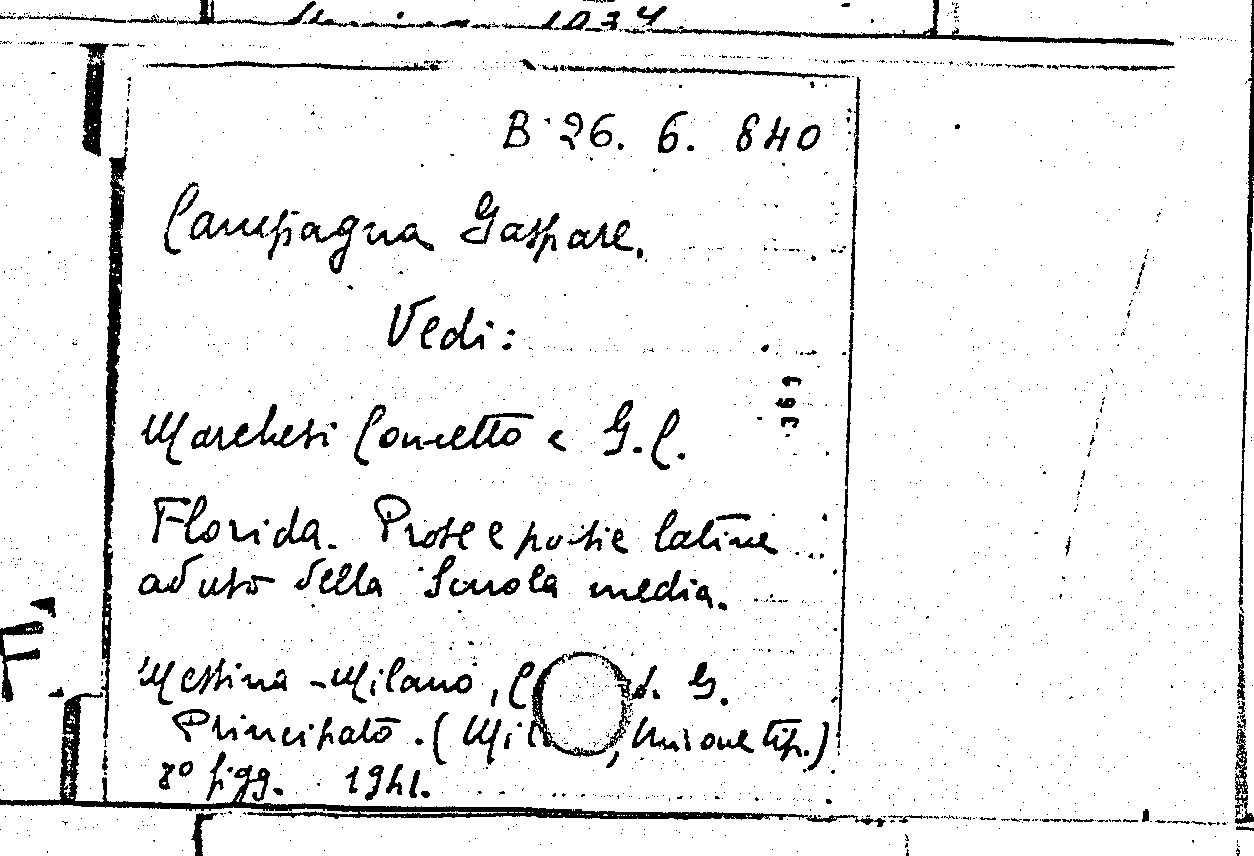 1934
B 26. 6. 840
Campagna Gaspare.
Vedi:
369
Marchesi Concetto e G. C.
Florida. Prose e poesie latine
ad uso della Scuola media.
F
Messina - Milano, G.
Principato. (Mil , Unione tip.)
8° figg. 1941.